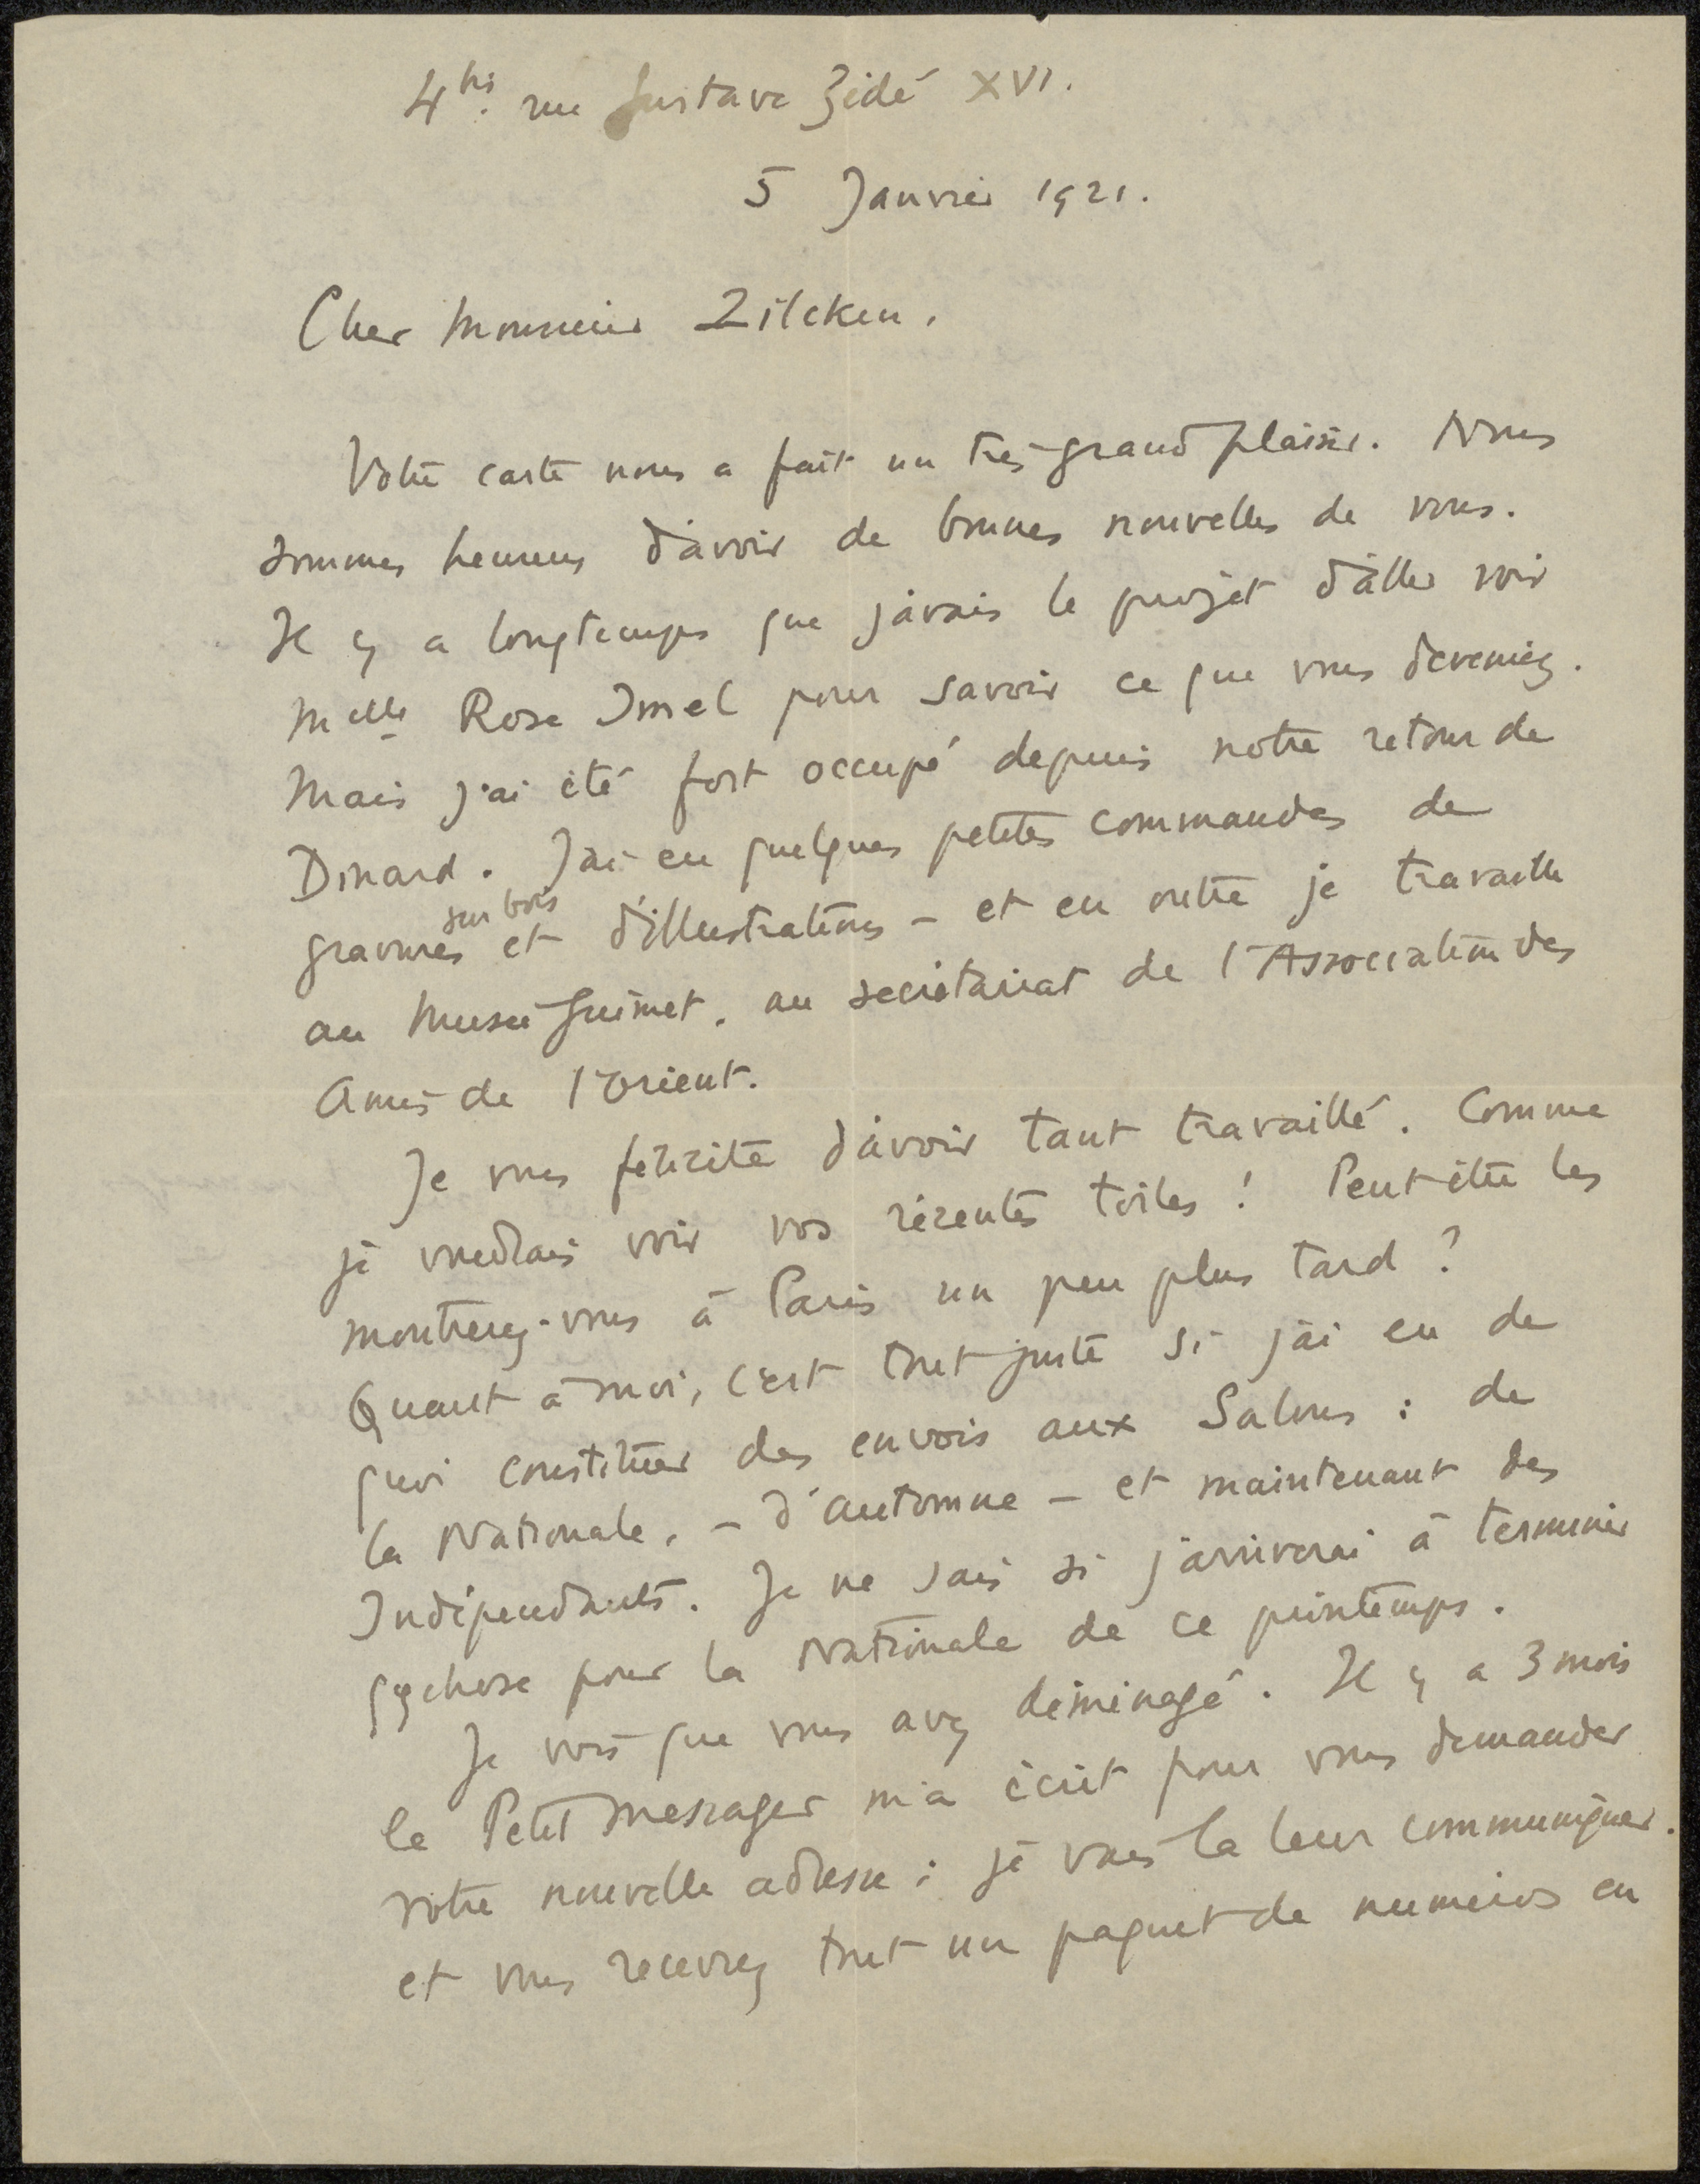 4bis. rue Gustave Zédé XVI.
5 Janvier 1921.
Cher Monsieur Zilcken,
Votre carte nous a fait un très grand plaisir. Nous
sommes heureux d'avoir de bonnes nouvelles de vous.
Il y a longtemps que j'avais le projet d'aller voir
Melle Rose Imel pour savoir ce que vous deveniez.
Mais j'ai été fort occupé depuis notre retour de
Dinard. J'ai eu quelques petites commandes de
gravures sur bois et d'illustrations – et en outre je travaille
au Musée Guimet, au secrétariat de l'Association des
Amis de l'Orient.
Je vous félicite d'avoir tant travaillé. Comme
je voudrais voir vos récentes toiles ! Peut-être les
montrerez-vous à Paris un peu plus tard ?
Quant à moi, c'est tout juste si j'ai eu de
quoi constituer des envois aux Salons : de
la Nationale, – d'Automne – et maintenant des
Indépendants. Je ne sais si j'arriverai à terminer
qqchose pour la Nationale de ce printemps.
Je vois que vous avez déménagé. Il y a 3 mois
le Petit Messager m'a écrit pour vous demander
votre nouvelle adresse : je vais la leur communiquer.
et vous recevrez tout un paquet de numéros en